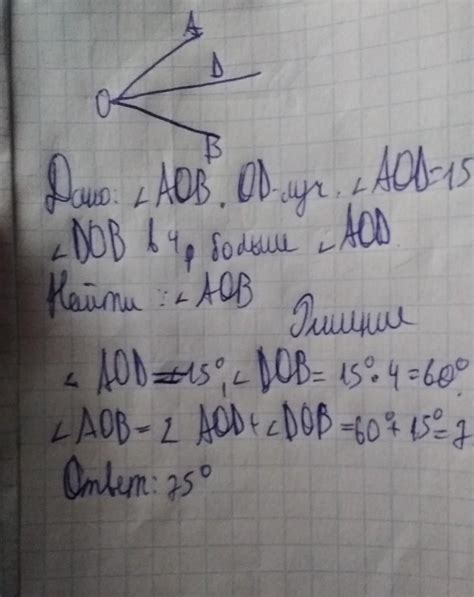 A
D
O
B
Дано: ∠AOB. OD-луч. ∠AOD=15
∠DOB в 4 р больше ∠AOD.
Найти: ∠AOB
Решение
∠ AOD = 15°, ∠DOB = 15° · 4 = 60°
∠AOB = ∠ AOD + ∠DOB = 60° + 15° = 7
Ответ: 75°